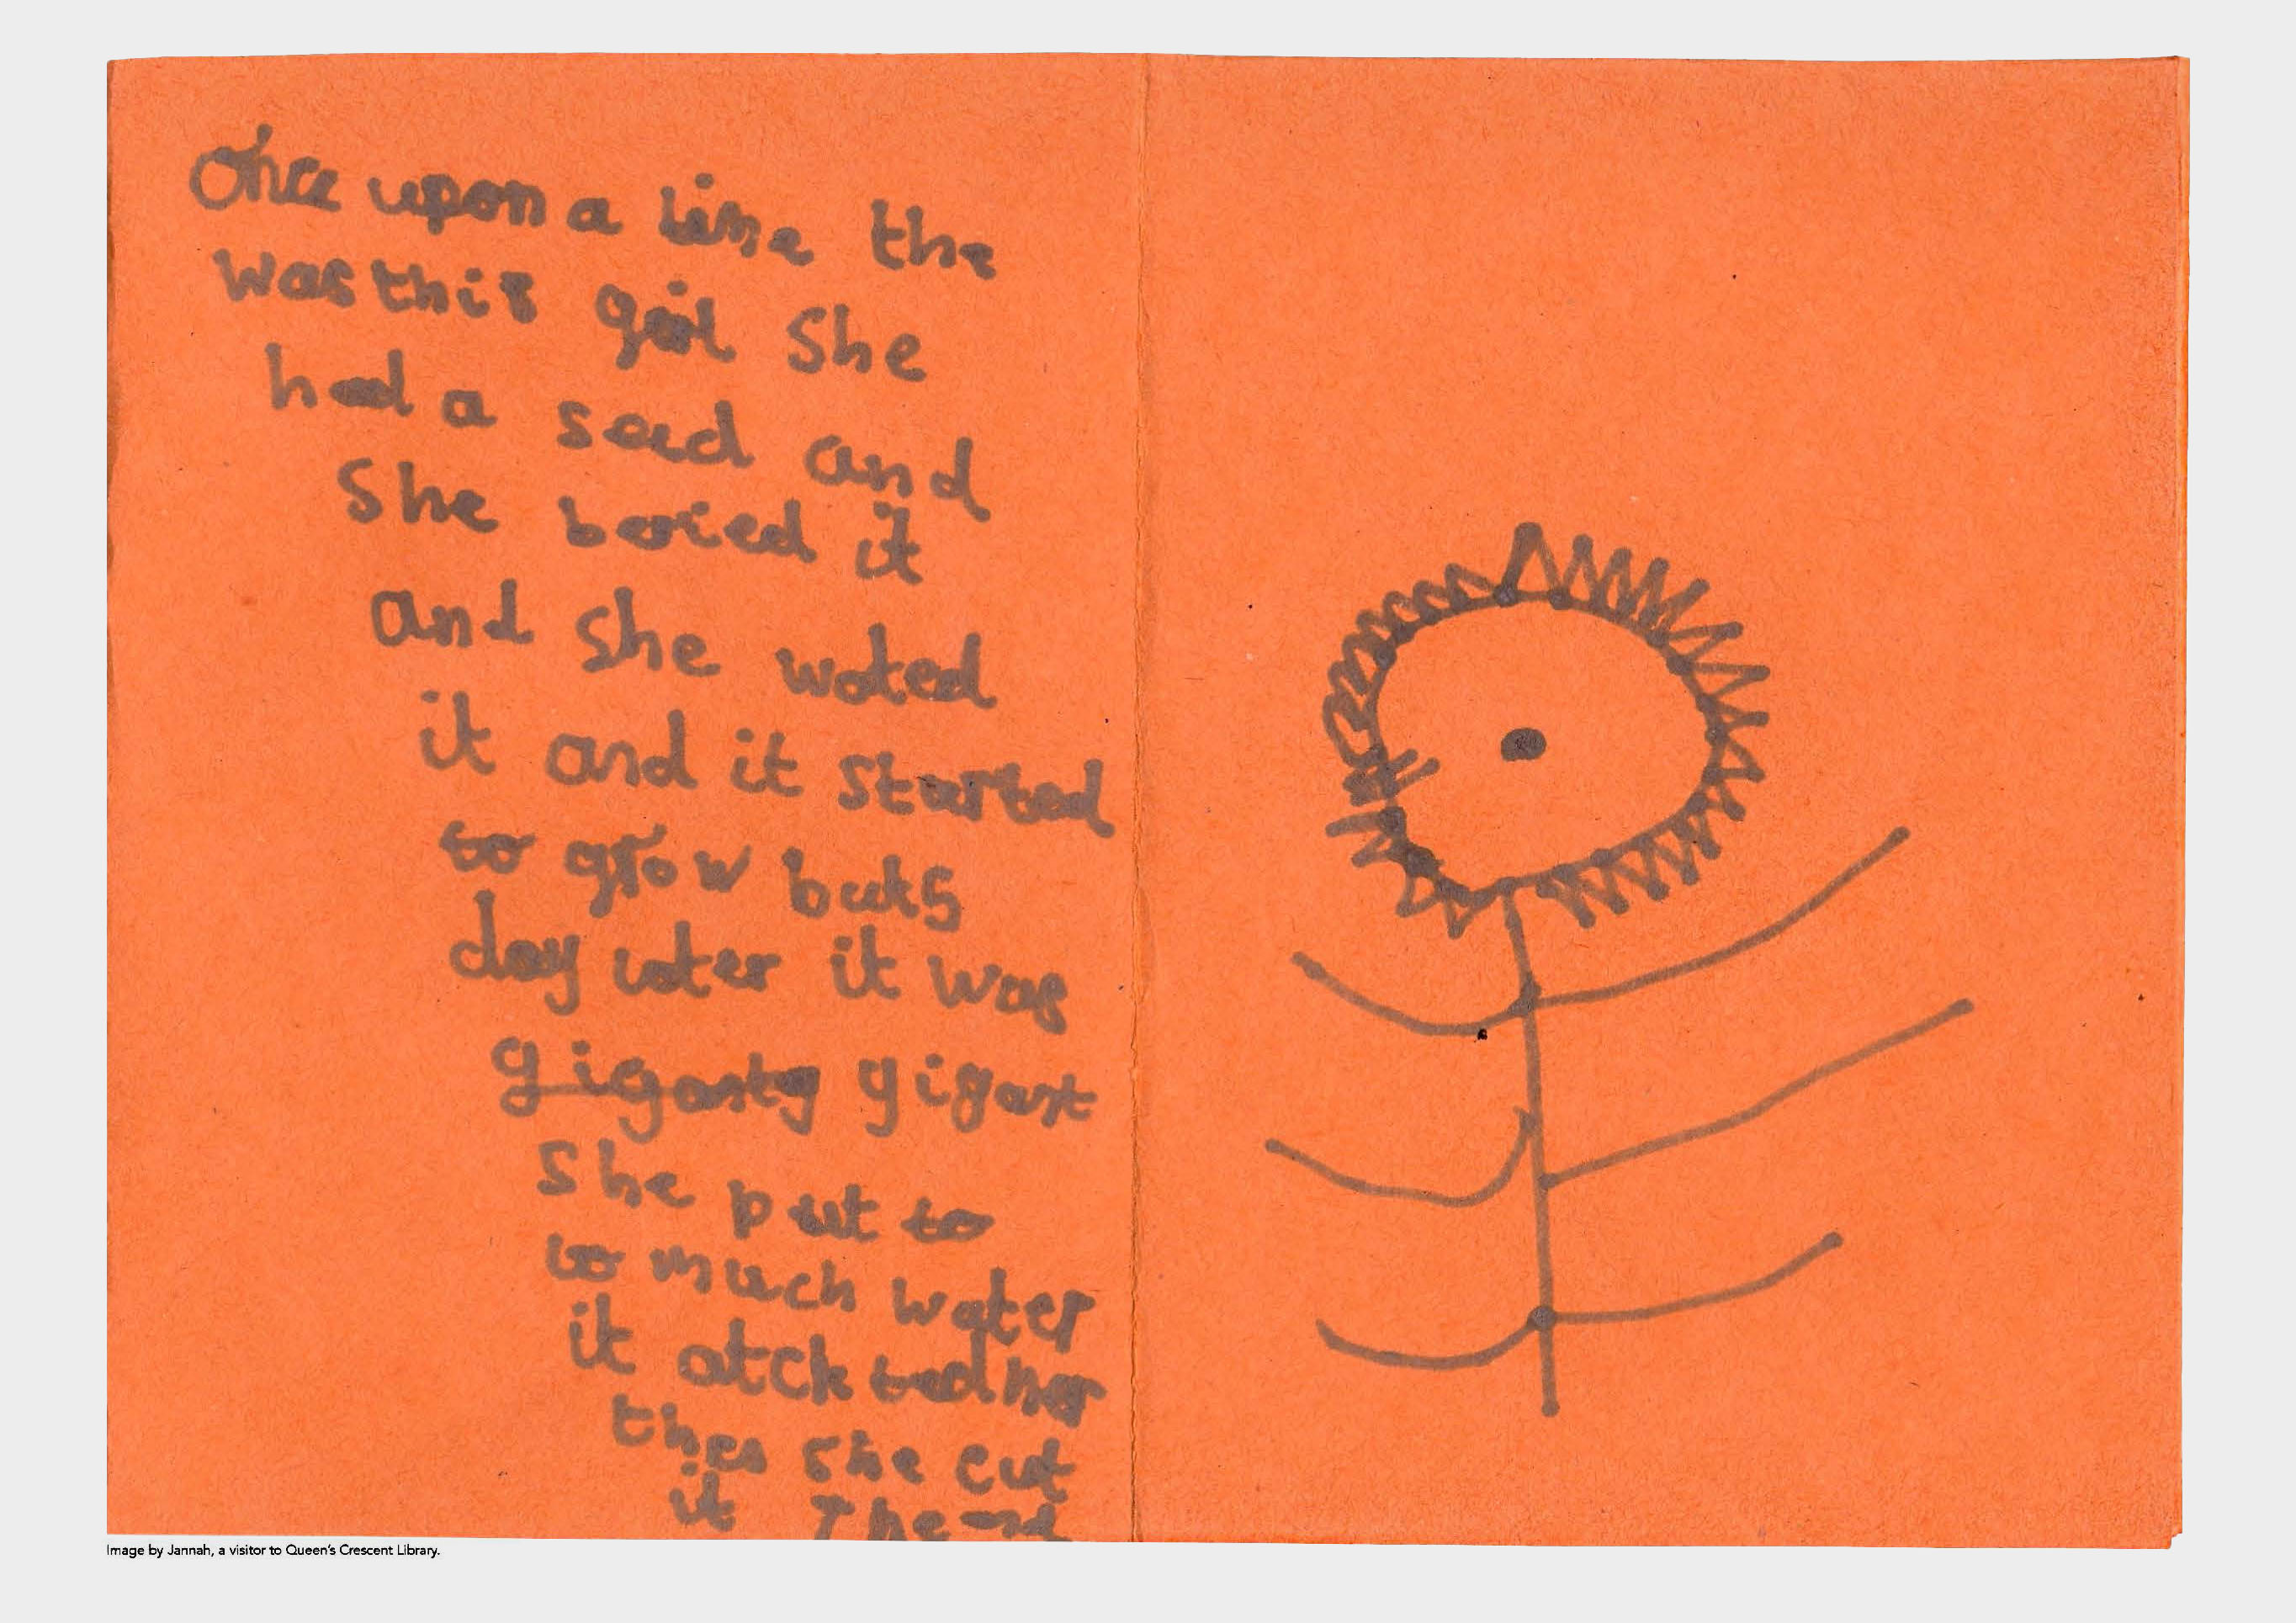 Once upon a time the
was this girl She
had a seed and
She boried it
and she woted
it and it started
to grow but 5
day later it was
giganty gigant
She put to
to much water
it atck ted her
then she cut
it The end
Image by Jannah, a visitor to Queen's Crescent Library.